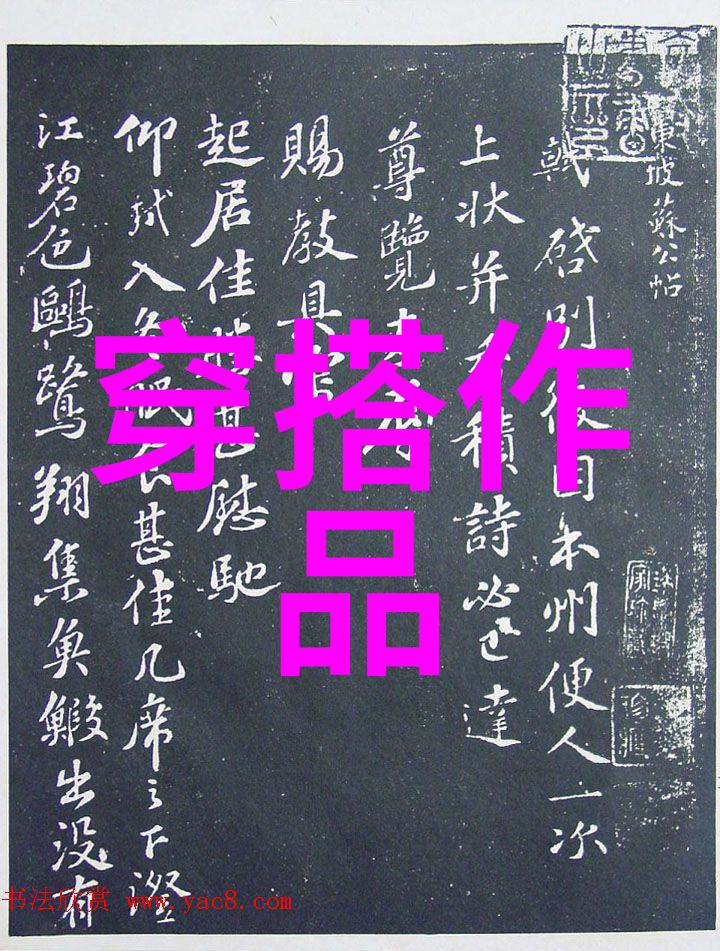 東坡蘇公帖
軾啓別後因本州便人一次
上狀并和積詩必已達
尊覽
賜教具
起居佳勝甚慰馳
仰軾入冬眠食甚佳几席之下澄
江碧色鷗鷺翔集魚鰕出没有
穿搭作
品
书法欣赏 www.yac8.com